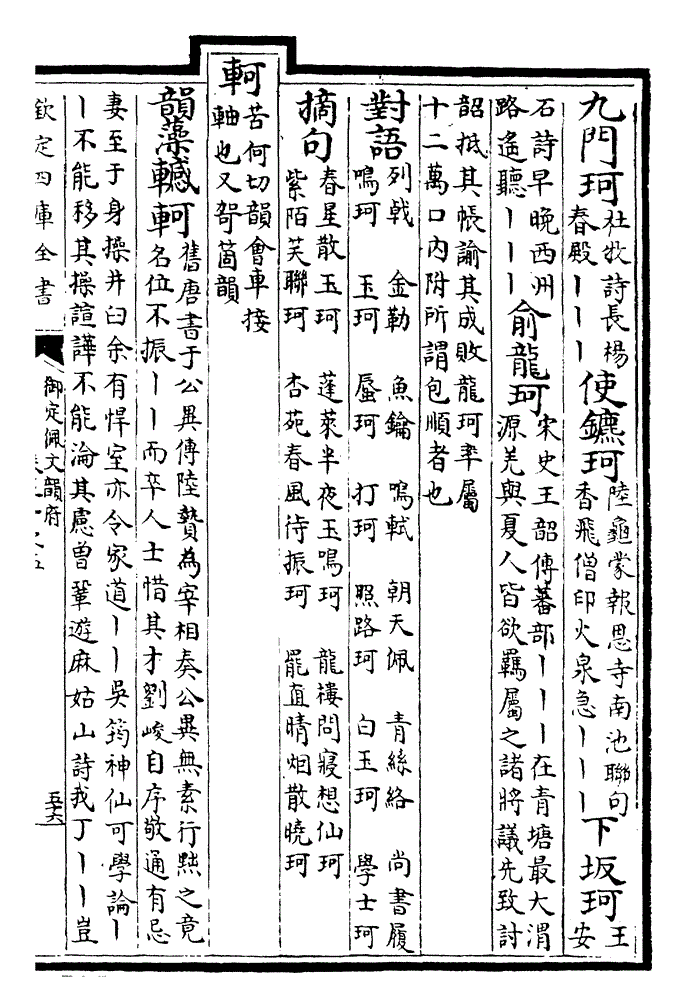 九門珂杜牧詩長楊春殿丨丨丨使鑣珂陸龜蒙報恩寺南池聯句香飛僧印火泉急丨丨丨下坂珂王安
石詩早晚西州路遙聽丨丨丨俞龍珂宋史王韶傳蕃部丨丨丨在青塘最大渭源羌與夏人皆欲羈屬之諸將議先致討
韶抵其帳諭其成敗龍珂率屬十二萬口內附所謂包順者也
對語列戟鳴珂 金勒玉珂 魚鑰蜃珂 鳴軾打珂 朝天佩照路珂 青絲絡白玉珂 尚書履學士珂
摘句春星散玉珂紫陌笑聯珂 蓬萊半夜玉鳴珂杏苑春風待振珂 龍樓問寢想仙珂罷直晴烟散曉珂
軻苦何切韻會車接軸也又哿箇韻
韻藻轗軻舊唐書于公異傳陸贄為宰相奏公異無素行黜之竟名位不振丨丨而卒人士惜其才劉峻自序敬通有忌
妻至于身操井臼余有悍室亦令家道丨丨吳筠神仙可學論丨丨不能移其操諠譁不能淪其慮曾鞏遊麻姑山詩我丁丨丨豈
欽定四庫全書
御定佩文韻府
五十六